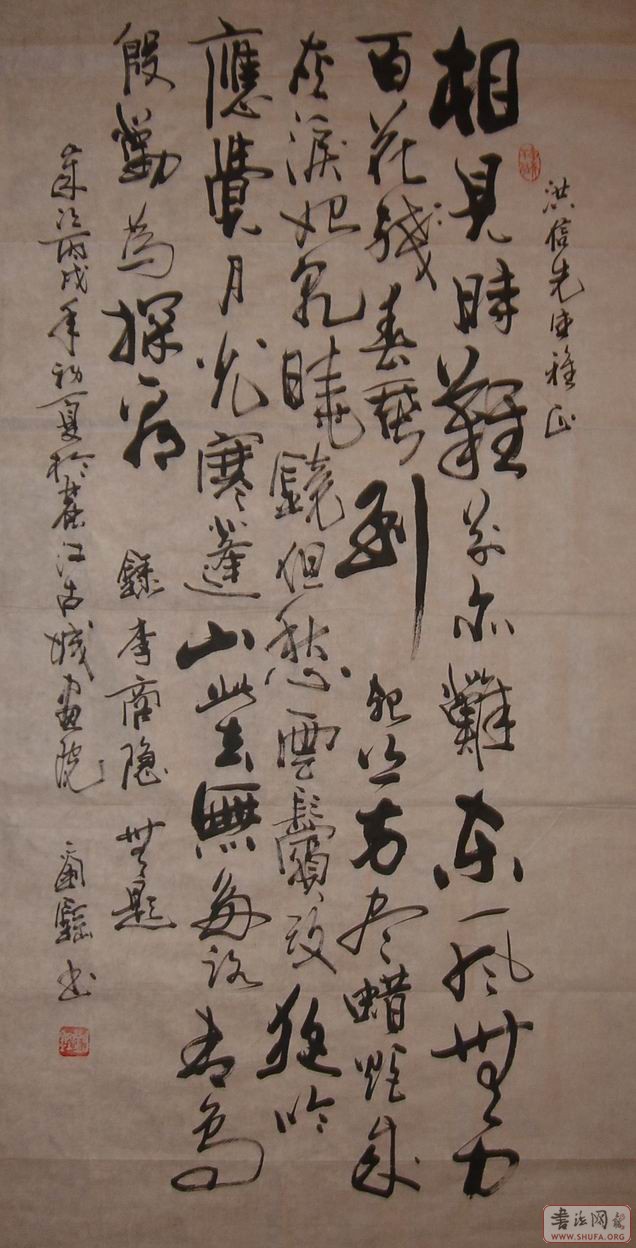 洪信先生雅正
相見時難别亦難东風無力
百花殘春蚕到死丝方尽蜡炬成
灰淚始乾曉鏡但愁雲鬢改夜吟
應覺月光寒蓬山此去無多路青鳥
殷勤為探看 錄李商隐無題
歲次丙戌年初夏於麗江古城画院 书
書法网
WWW.SHUFA.ORG